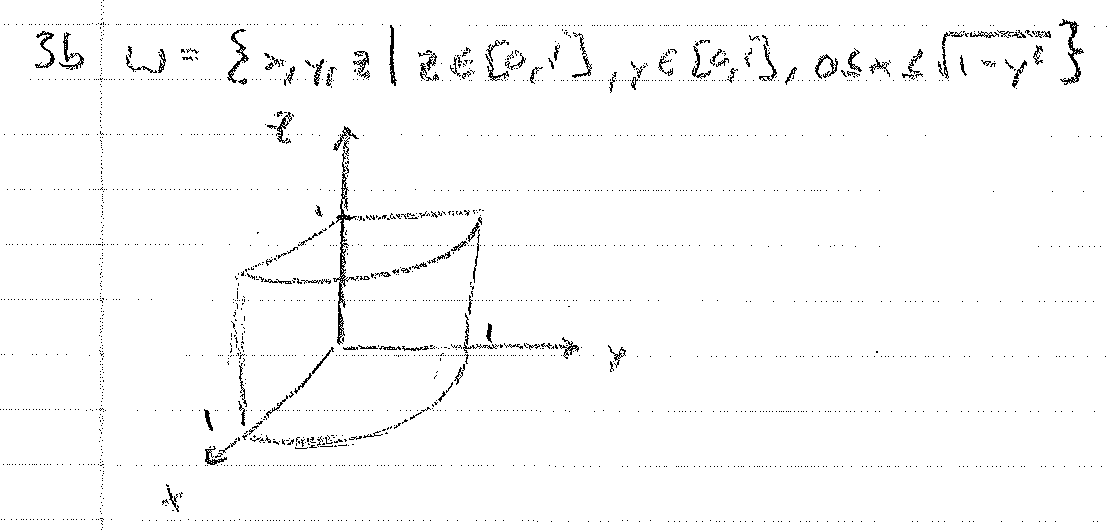 3b W = {x, y, z | z ∈ [0, 1], y ∈ [0, 1], 0 ≤ x ≤ √1-y²}
z
1
1
y
1
x